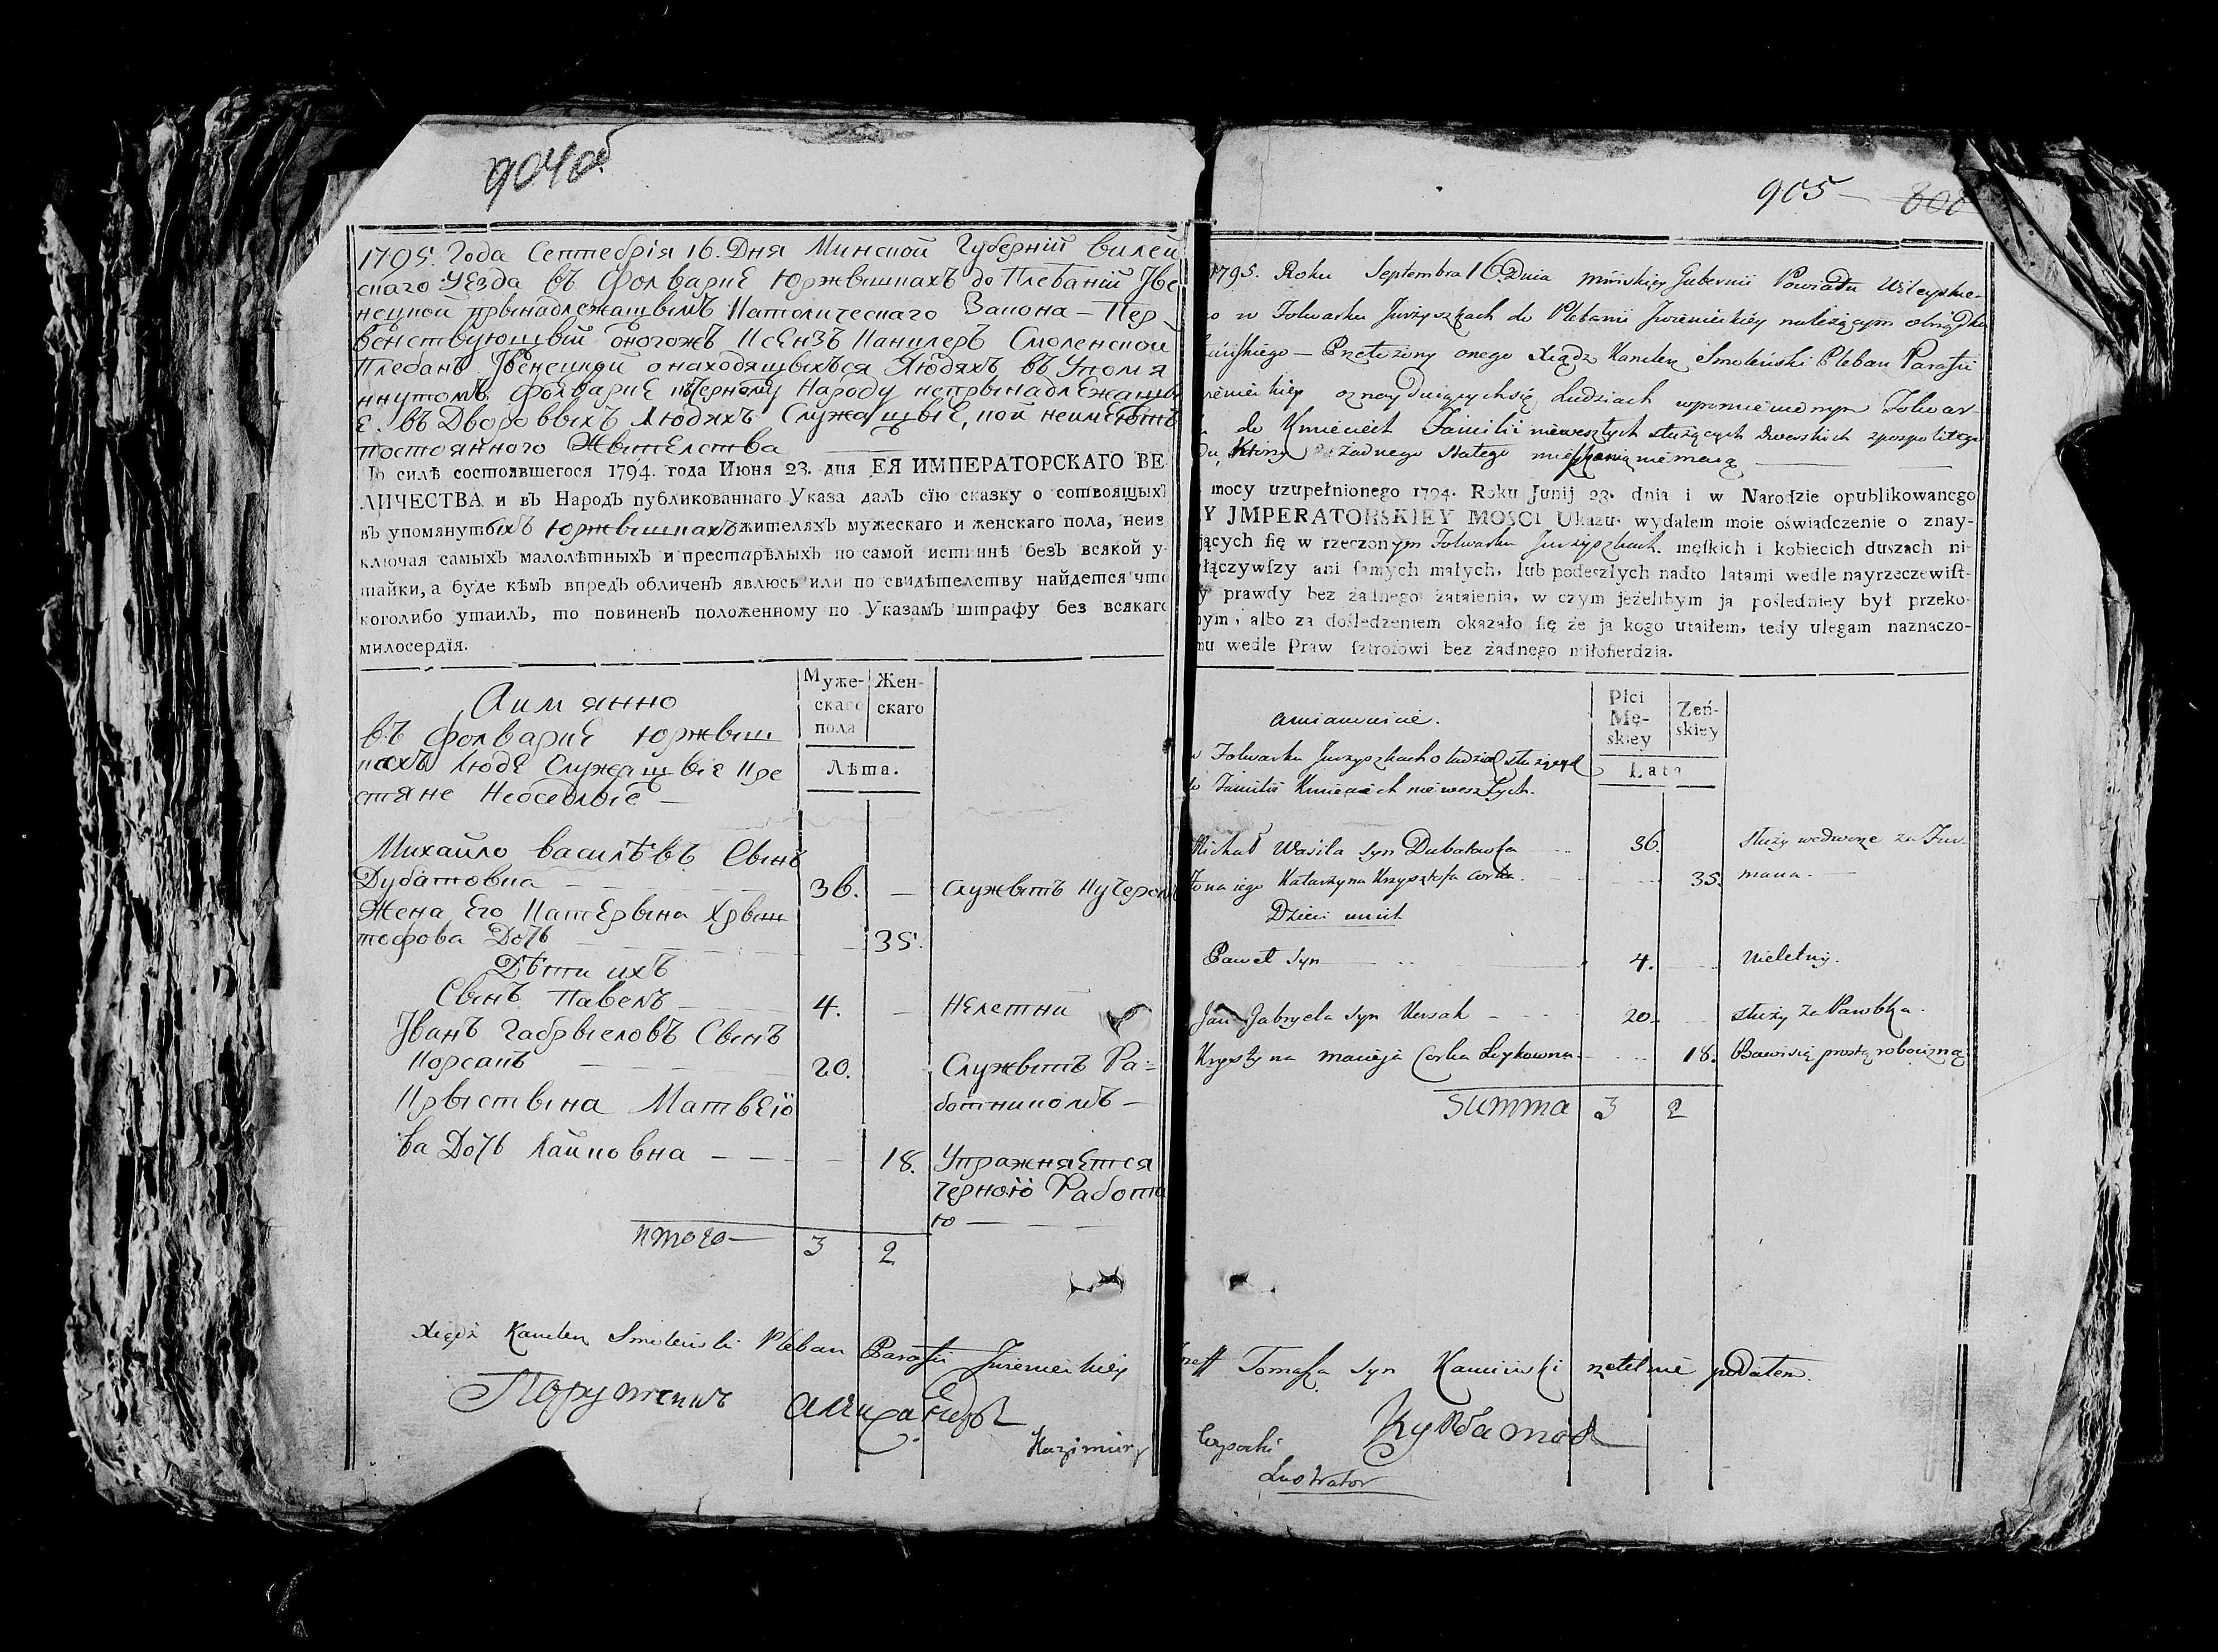 904об
1795. Года Септебрія 16. Дня Минской Губерніи Вилей
скаго Уезда въ Фолварке Юржышкахъ до Плебаніи Јве
нецкой прынадлежащымъ Католическаго Закона — Пер
венствующый оногожъ Ксензъ Канцлеръ Смоленской
Плебанъ Јвенецкой онаходящыхъся Людяхъ въ Упомя
ннутомъ Фолварке къ Черному Народу непрынадлежащы
е. въ Дворовыхъ Людяхъ Служащые, кои неимеютъ
постояйного Жытелства
Въ силѣ состоявшегося 1794. года Июня 23. дня ЕЯ ИМПЕРАТОРСКАГО ВЕ
ЛИЧЕСТВА и въ Народъ публикованнаго Указа далъ сїю сказку о состоящыхъ
въ упомянутыхъ Юржышкахъ жителяхъ мужескаго и женскаго пола, неиз
ключая самыхъ малолѣтныхъ и престарѣлыхъ по самой истиннѣ безъ всякой у-
тайки, а буде кѣмъ впредъ обличенъ явлюсь или по свидѣтелству найдется что
коголибо утаилъ, то повиненъ положенному по Указамъ штрафу без всякаго
милосердїя.
Аимянно
Муже-
скаго
пола
Жен-
скаго
Лѣта.
въ Фолварке Юржыш
кахъ Люде Служащые Кре
стяне Неоседлые —
Михайло Василѣвъ Сынъ
Дубатовка — 36. — Служытъ Кучеромъ
Жена Его Катерына Хрыш
тофова Дочь — 35.
Дѣти ихъ
Сынъ Павелъ — 4. — Нелетни
Јванъ Габрыеловъ Сынъ
Корсакъ — 20. Служытъ Ра=
ботникомъ —
Крыстына Матвеїо
ва Дочь Лайковна — — — 18. Упражняется
черноїо Работо
ю —
итого — 3 2
Xiądz Kancler Smoleński Pleban Parafii Jwienieckiey
Порутчикъ Александръ
Kazimierz
905 — 800
1795. Roku Septembra 16. Dnia Mińskiey Gubernii Powiatu Wileyskie-
o w Folwarku Jurżyszkach do Plebanii Jwienieckiey należącym obrządku
Przełożony onego Xiądz Kanclerz Smoleński Pleban Parafii
o znayduiących się Ludziach wpomienionym Folwar-
do Kmiecieh Familii nieweszłych służących dworskich zpospolitego
du, Ktorzy żadnego stałego mieszkania nie maią —
mocy uzupełnionego 1794. Roku Junij 23. dnia i w Narodzie opublikowanego
Y JMPERATORSKIEY MOSCI Ukazu. wydałem moie oświadczenie o znay-
jących się w rzeczonym Folwarku Jurżyszkach. męſkich i kobiecich duszach ni-
łączywſzy ani ſamych małych, lub podeszłych nadto latami wedle nayrzeczewiſt-
y prawdy bez żadnego zataienia, w czym jeżelibym ja poſledniey był przeko-
nym, albo za doſledzeniem okazało ſię że ja kogo utaiłem, tedy ulegam naznaczo-
mu wedle Praw ſztrofowi bez żadnego miłoſierdzia.
amianowicie.
Płci
Mę-
skiey
Żeń-
skiey
Lata
w Folwarku Jurżyszkach o ludziach służących
do Familii Kmiecieh nieweszłych.
Michał Wasila syn Dubatowka — 36. służy we dworze za Fur-
mana. —
Żona iego Katarzyna Krzysztofa corka. 35.
Dzieci onich
Paweł syn — 4. Nieletny.
Jan Gabryela syn Korsak — 20. służy za Parobka.
Krystyna Macieja Corka Łoykowna — 18. Bawi się prostą robocizną
Summa 3 2
Tomaſza syn Kamiński rzetelnie podałem.
Курбатовъ
Wysocki
Lustrator